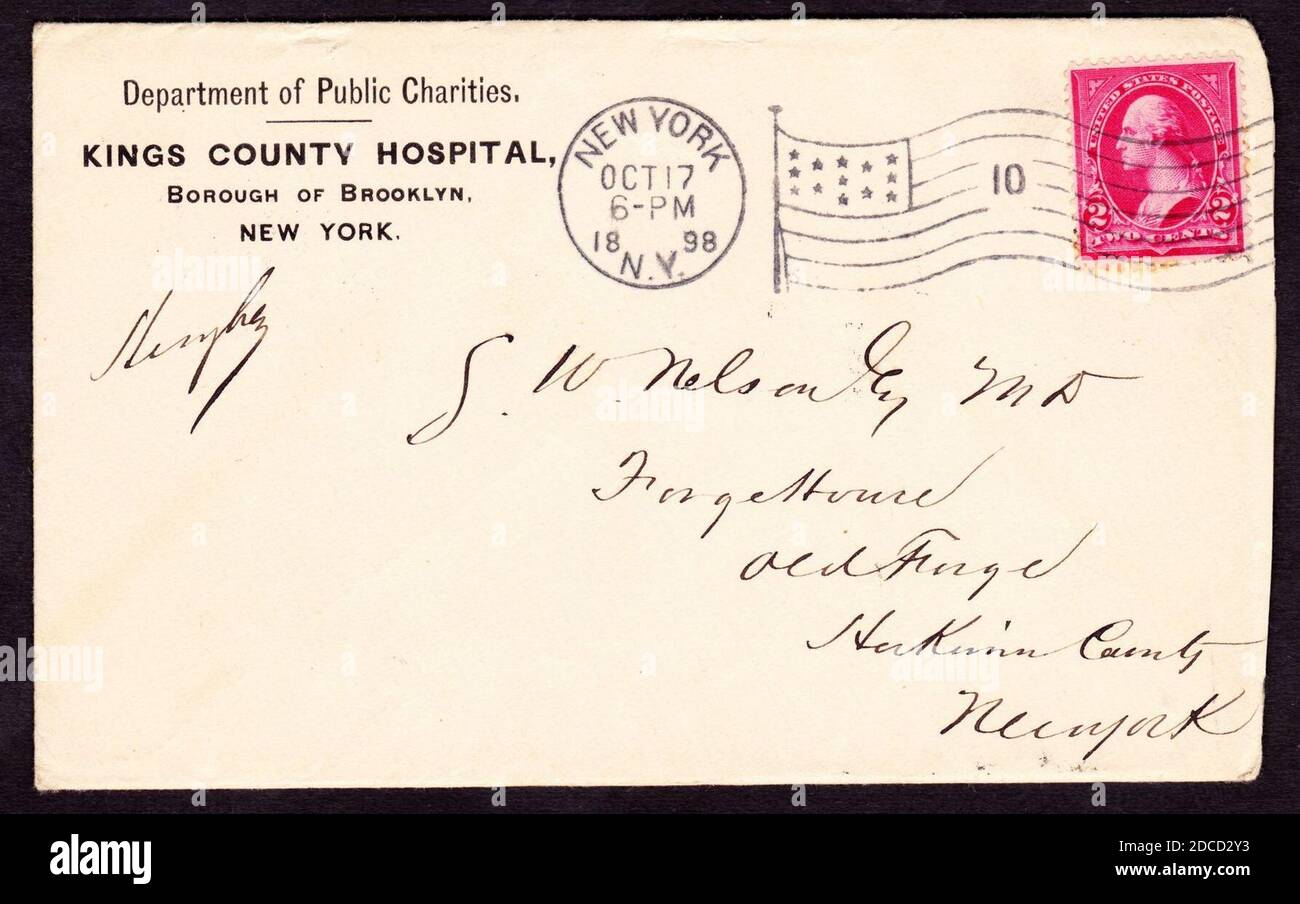 Department of Public Charities.
KINGS COUNTY HOSPITAL,
BOROUGH OF BROOKLYN,
NEW YORK.
NEW YORK
OCT 17
6-PM
18 98
N.Y.
10
UNITED STATES POSTAGE
2 2
TWO CENTS
S. W Nelson Esq M D
Forge House
Old Forge
Herkimer County
New york
alamy
Image ID: 2DCD2Y3
www.alamy.com